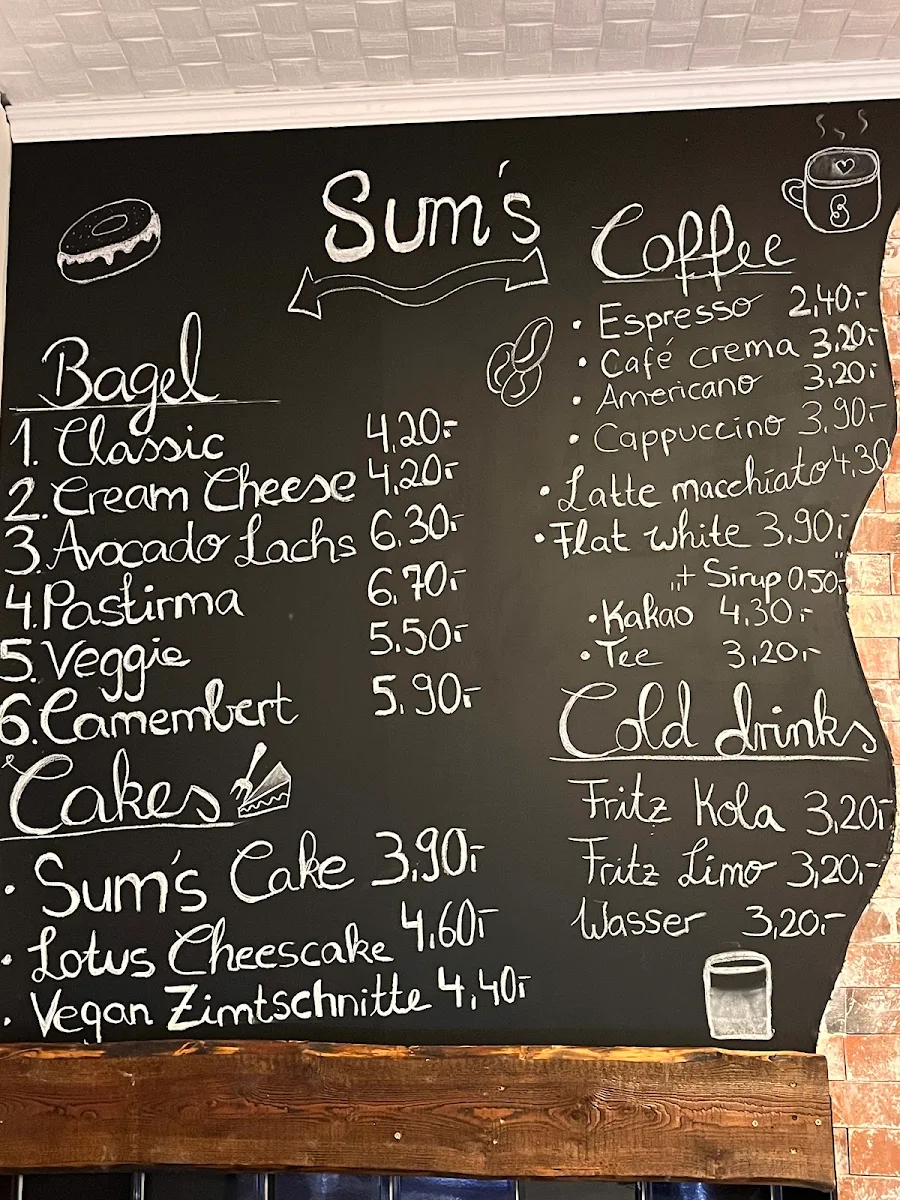 Sum's
Bagel
1. Classic 4,20,-
2. Cream Cheese 4,20,-
3. Avocado Lachs 6,30,-
4. Pastirma 6,70,-
5. Veggie 5,50,-
6. Camembert 5,90,-
Cakes
• Sum's Cake 3,90,-
• Lotus Cheescake 4,60,-
• Vegan Zimtschnitte 4,40,-
Coffee
• Espresso 2,40,-
• Café crema 3,20,-
• Americano 3,20,-
• Cappuccino 3,90,-
• Latte macchiato 4,30
• Flat white 3,90,-
"+ Sirup 0,50,-"
• Kakao 4,30,-
• Tee 3,20,-
Cold drinks
Fritz Kola 3,20,-
Fritz Limo 3,20,-
Wasser 3,20,-